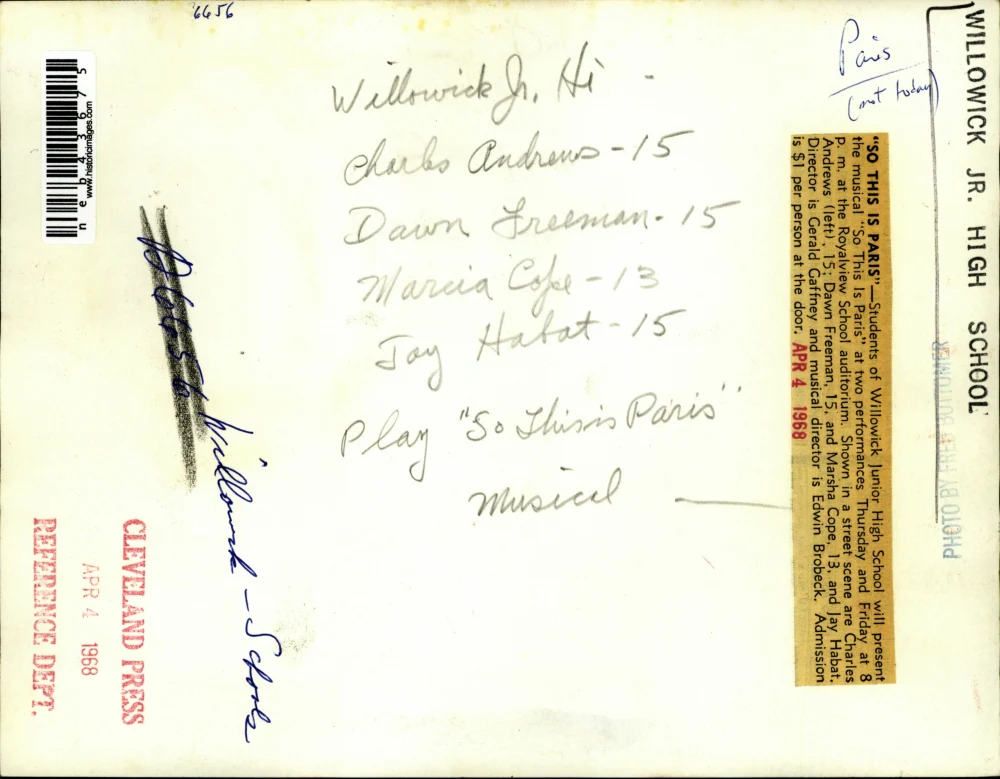 6656
Willowick Jr. Hi -
Charles Andrews - 15
Dawn Freeman - 15
Marcia Cope - 13
Jay Habat - 15
Play "So This is Paris"
Musical
Paris
(not today)
WILLOWICK JR. HIGH SCHOOL
PHOTO BY FRED BOTTOMER
"SO THIS IS PARIS"—Students of Willowick Junior High School will present
the musical "So This Is Paris" at two performances Thursday and Friday at 8
p. m. at the Royalview School auditorium. Shown in a street scene are Charles
Andrews (left), 15; Dawn Freeman, 15, and Marsha Cope, 13, and Jay Habat.
Director is Gerald Gaffney and musical director is Edwin Brobeck. Admission
is $1 per person at the door. APR 4 1968
Willowick - Schools
CLEVELAND PRESS
APR 4 1968
REFERENCE DEPT.
www.historicimages.com
neb43675